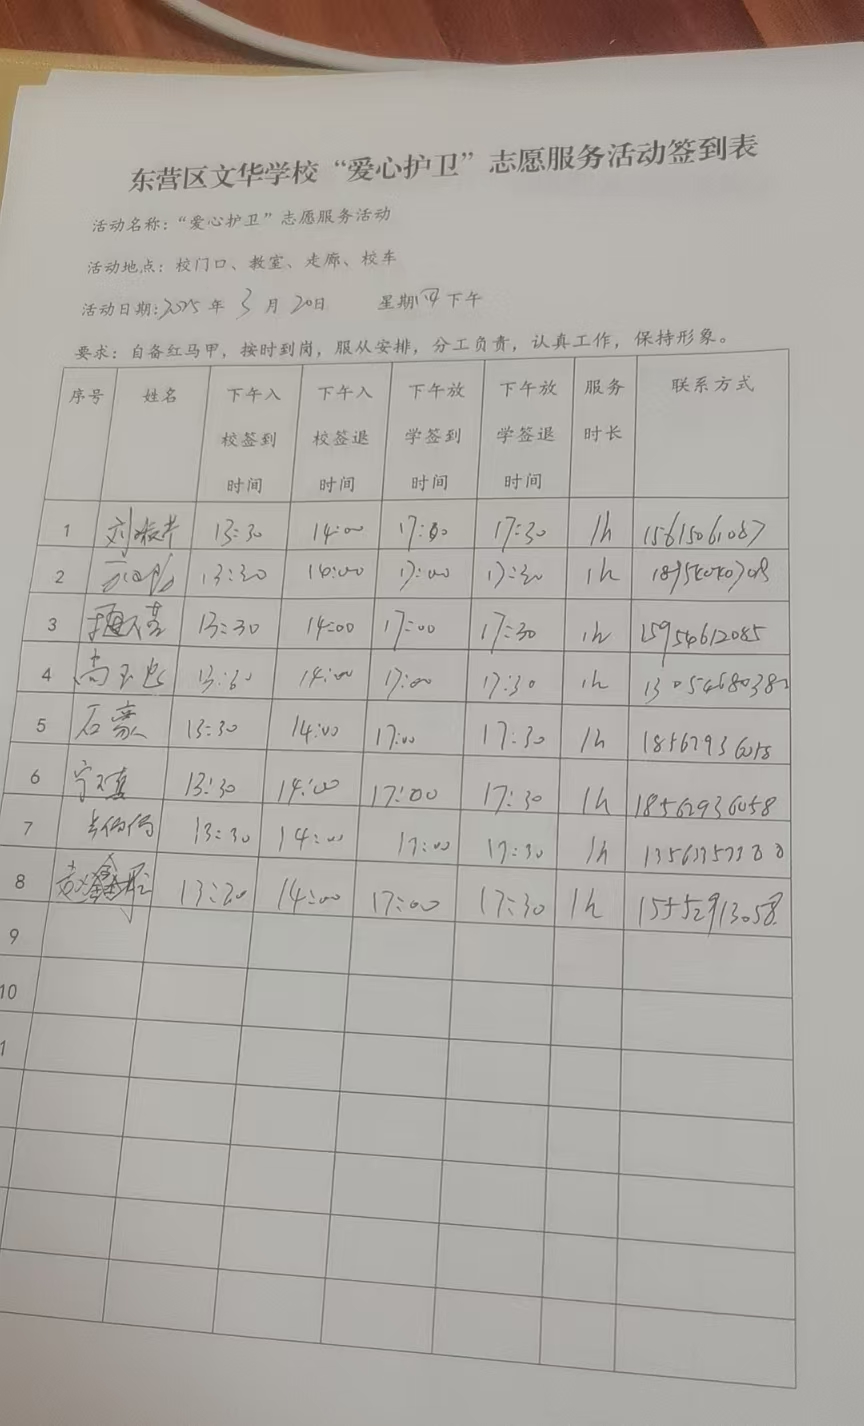 东营区文华学校“爱心护卫”志愿服务活动签到表
活动名称：“爱心护卫”志愿服务活动
活动地点：校门口、教室、走廊、校车
活动日期：2025年 3月 20日 星期四下午
要求：自备红马甲，按时到岗，服从安排，分工负责，认真工作，保持形象。
序号 姓名 下午入校签到时间 下午入校签退时间 下午放学签到时间 下午放学签退时间 服务时长 联系方式
1 刘 13:30 14:00 17:00 17:30 1h 15615061087
2 13:30 14:00 17:00 17:30 1h
3 13:30 14:00 17:00 17:30 1h 15954612085
4 尚玉 13:30 14:00 17:00 17:30 1h 13054680380
5 石豪 13:30 14:00 17:00 17:30 1h 18562936058
6 宁 13:30 14:00 17:00 17:30 1h 18562936058
7 13:30 14:00 17:00 17:30 1h
8 鑫 13:30 14:00 17:00 17:30 1h 15552913058
9
10
1